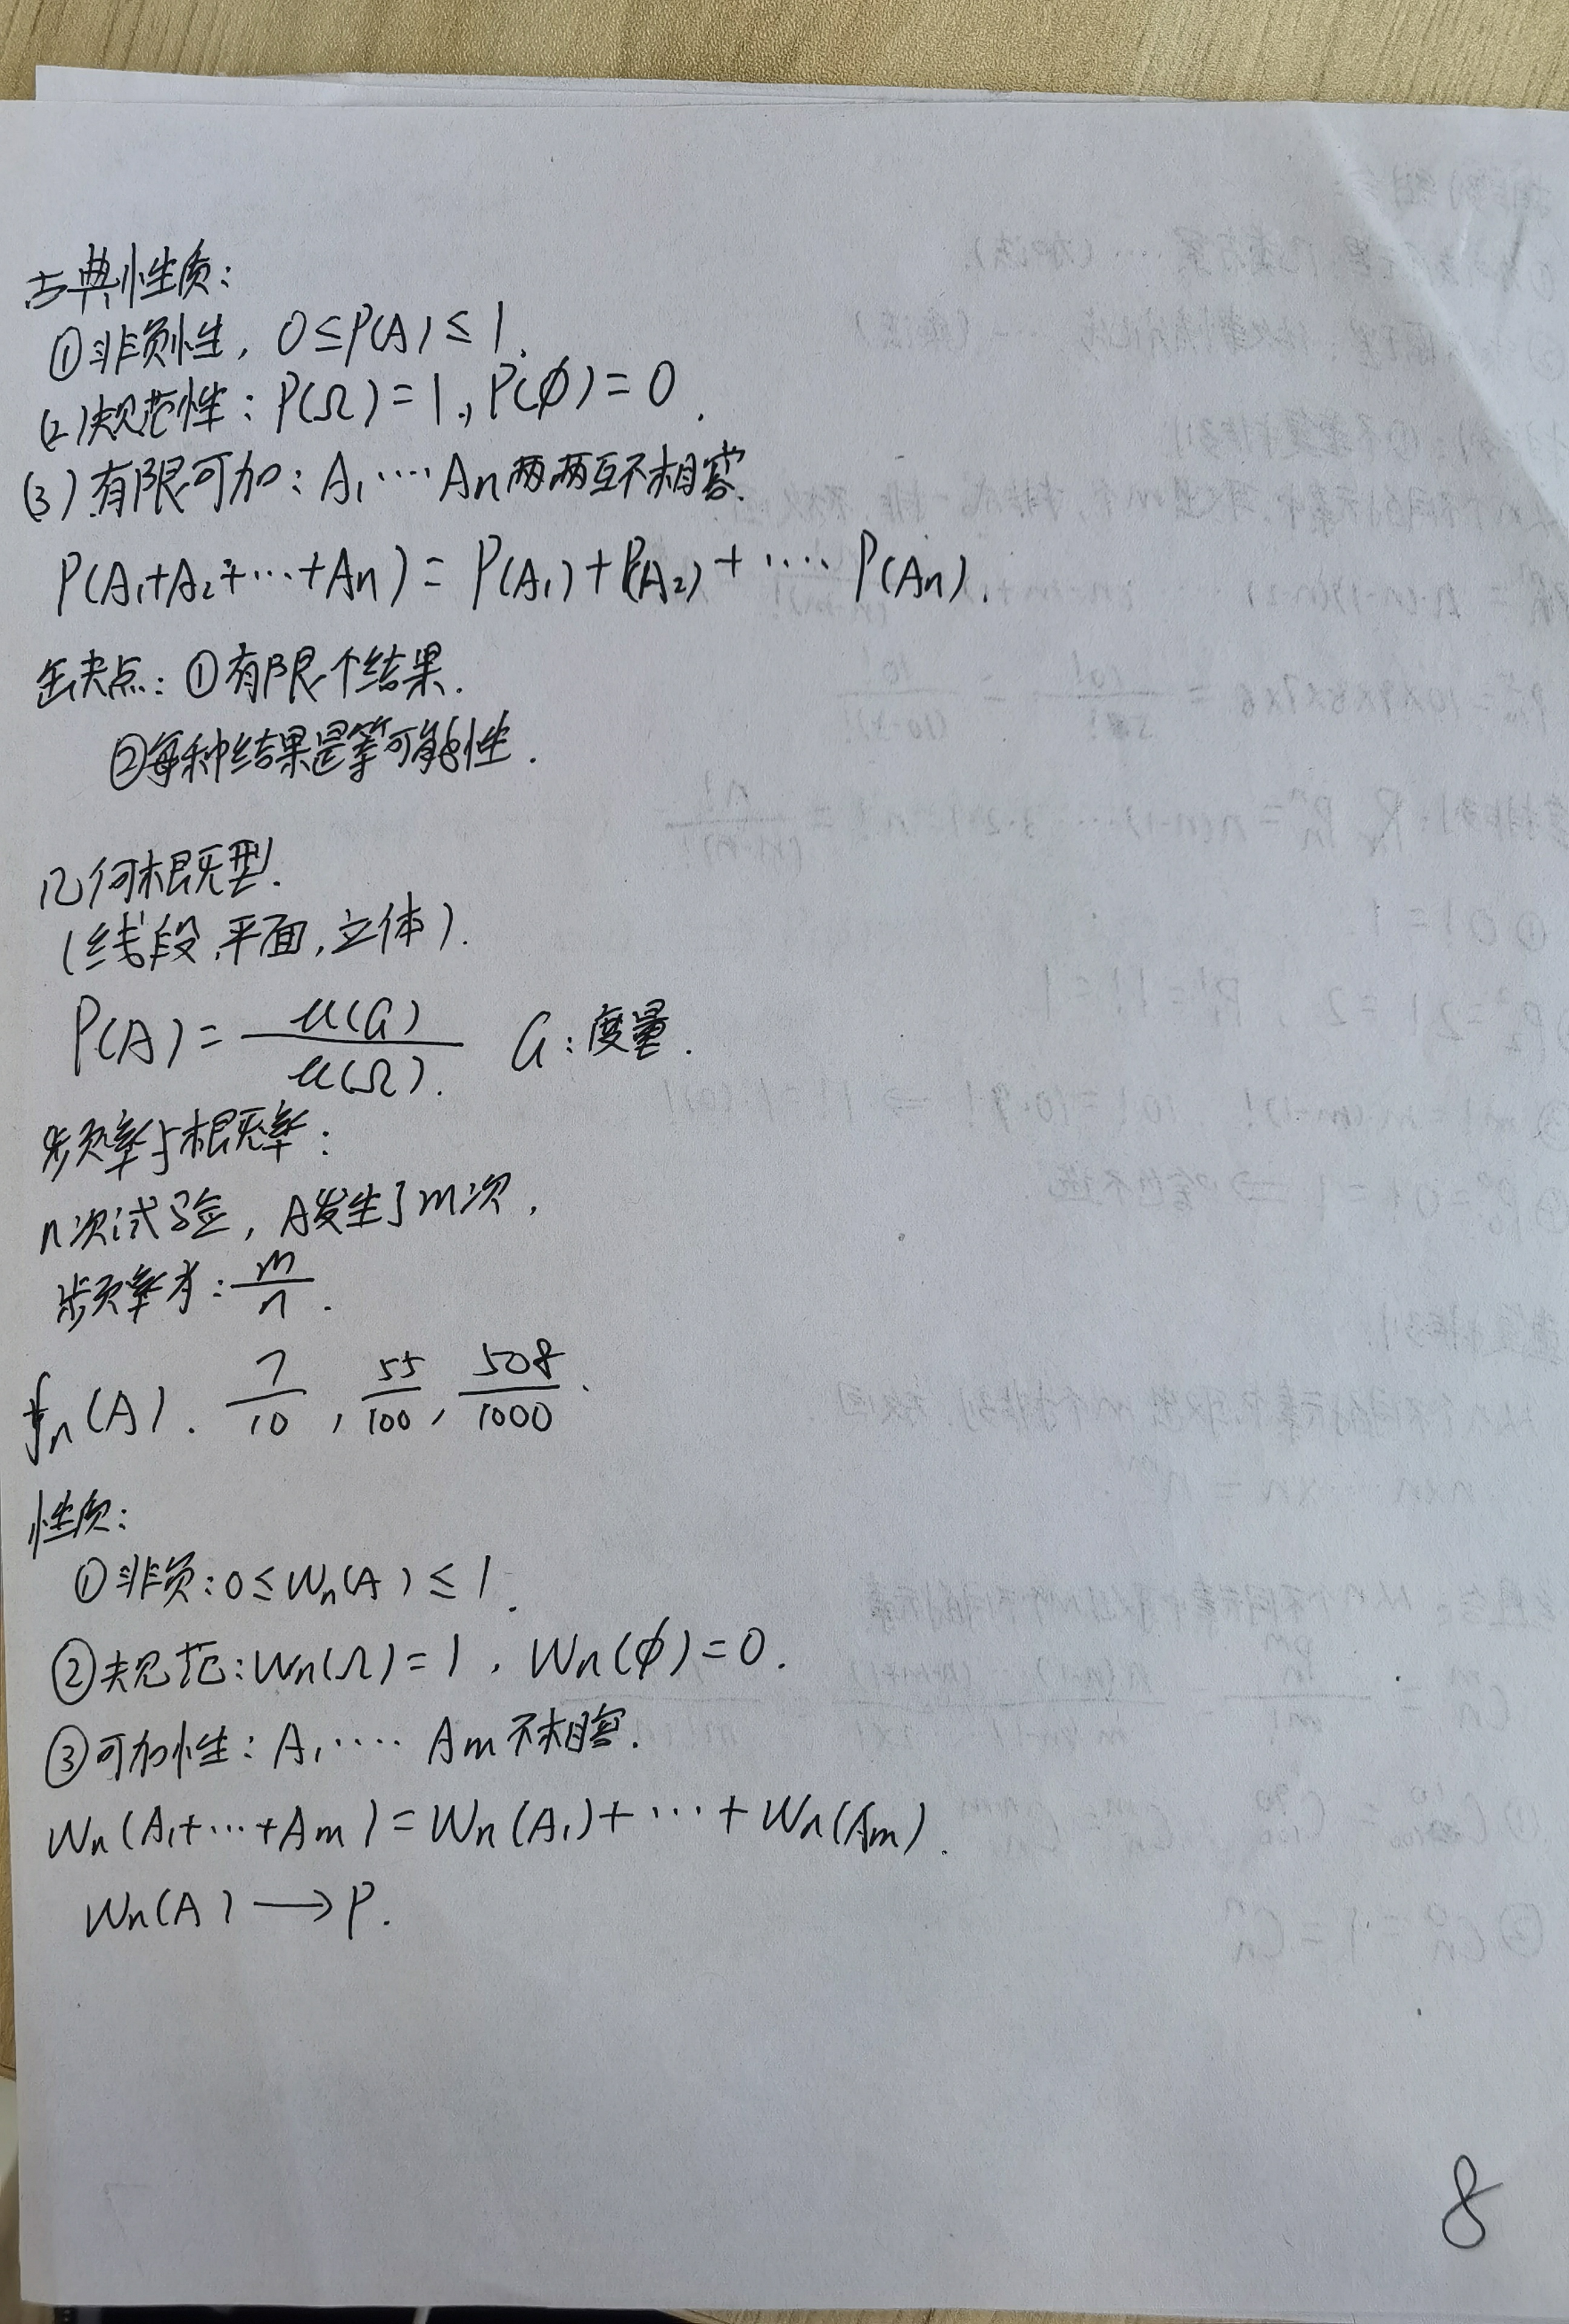 古典性质：
①非负性，0≤P(A)≤1.
(2)规范性：P(Ω)=1.，P(φ)=0.
(3)有限可加：A₁····An两两互不相容.
P(A₁+A₂+···+An)=P(A₁)+P(A₂)+····P(An).
缺点：①有限个结果.
②每种结果是等可能性.
几何概型.
(线段,平面,立体).
P(A)=μ(G)/μ(Ω). G：度量.
频率与概率：
n次试验，A发生了m次，
频率为：m/n.
fn(A). 7/10，55/100，508/1000.
性质：
①非负：0≤Wn(A)≤1.
②规范：Wn(Ω)=1，Wn(φ)=0.
③可加性：A₁····Am不相容.
Wn(A₁+···+Am)=Wn(A₁)+···+Wn(Am).
Wn(A)→P.
8